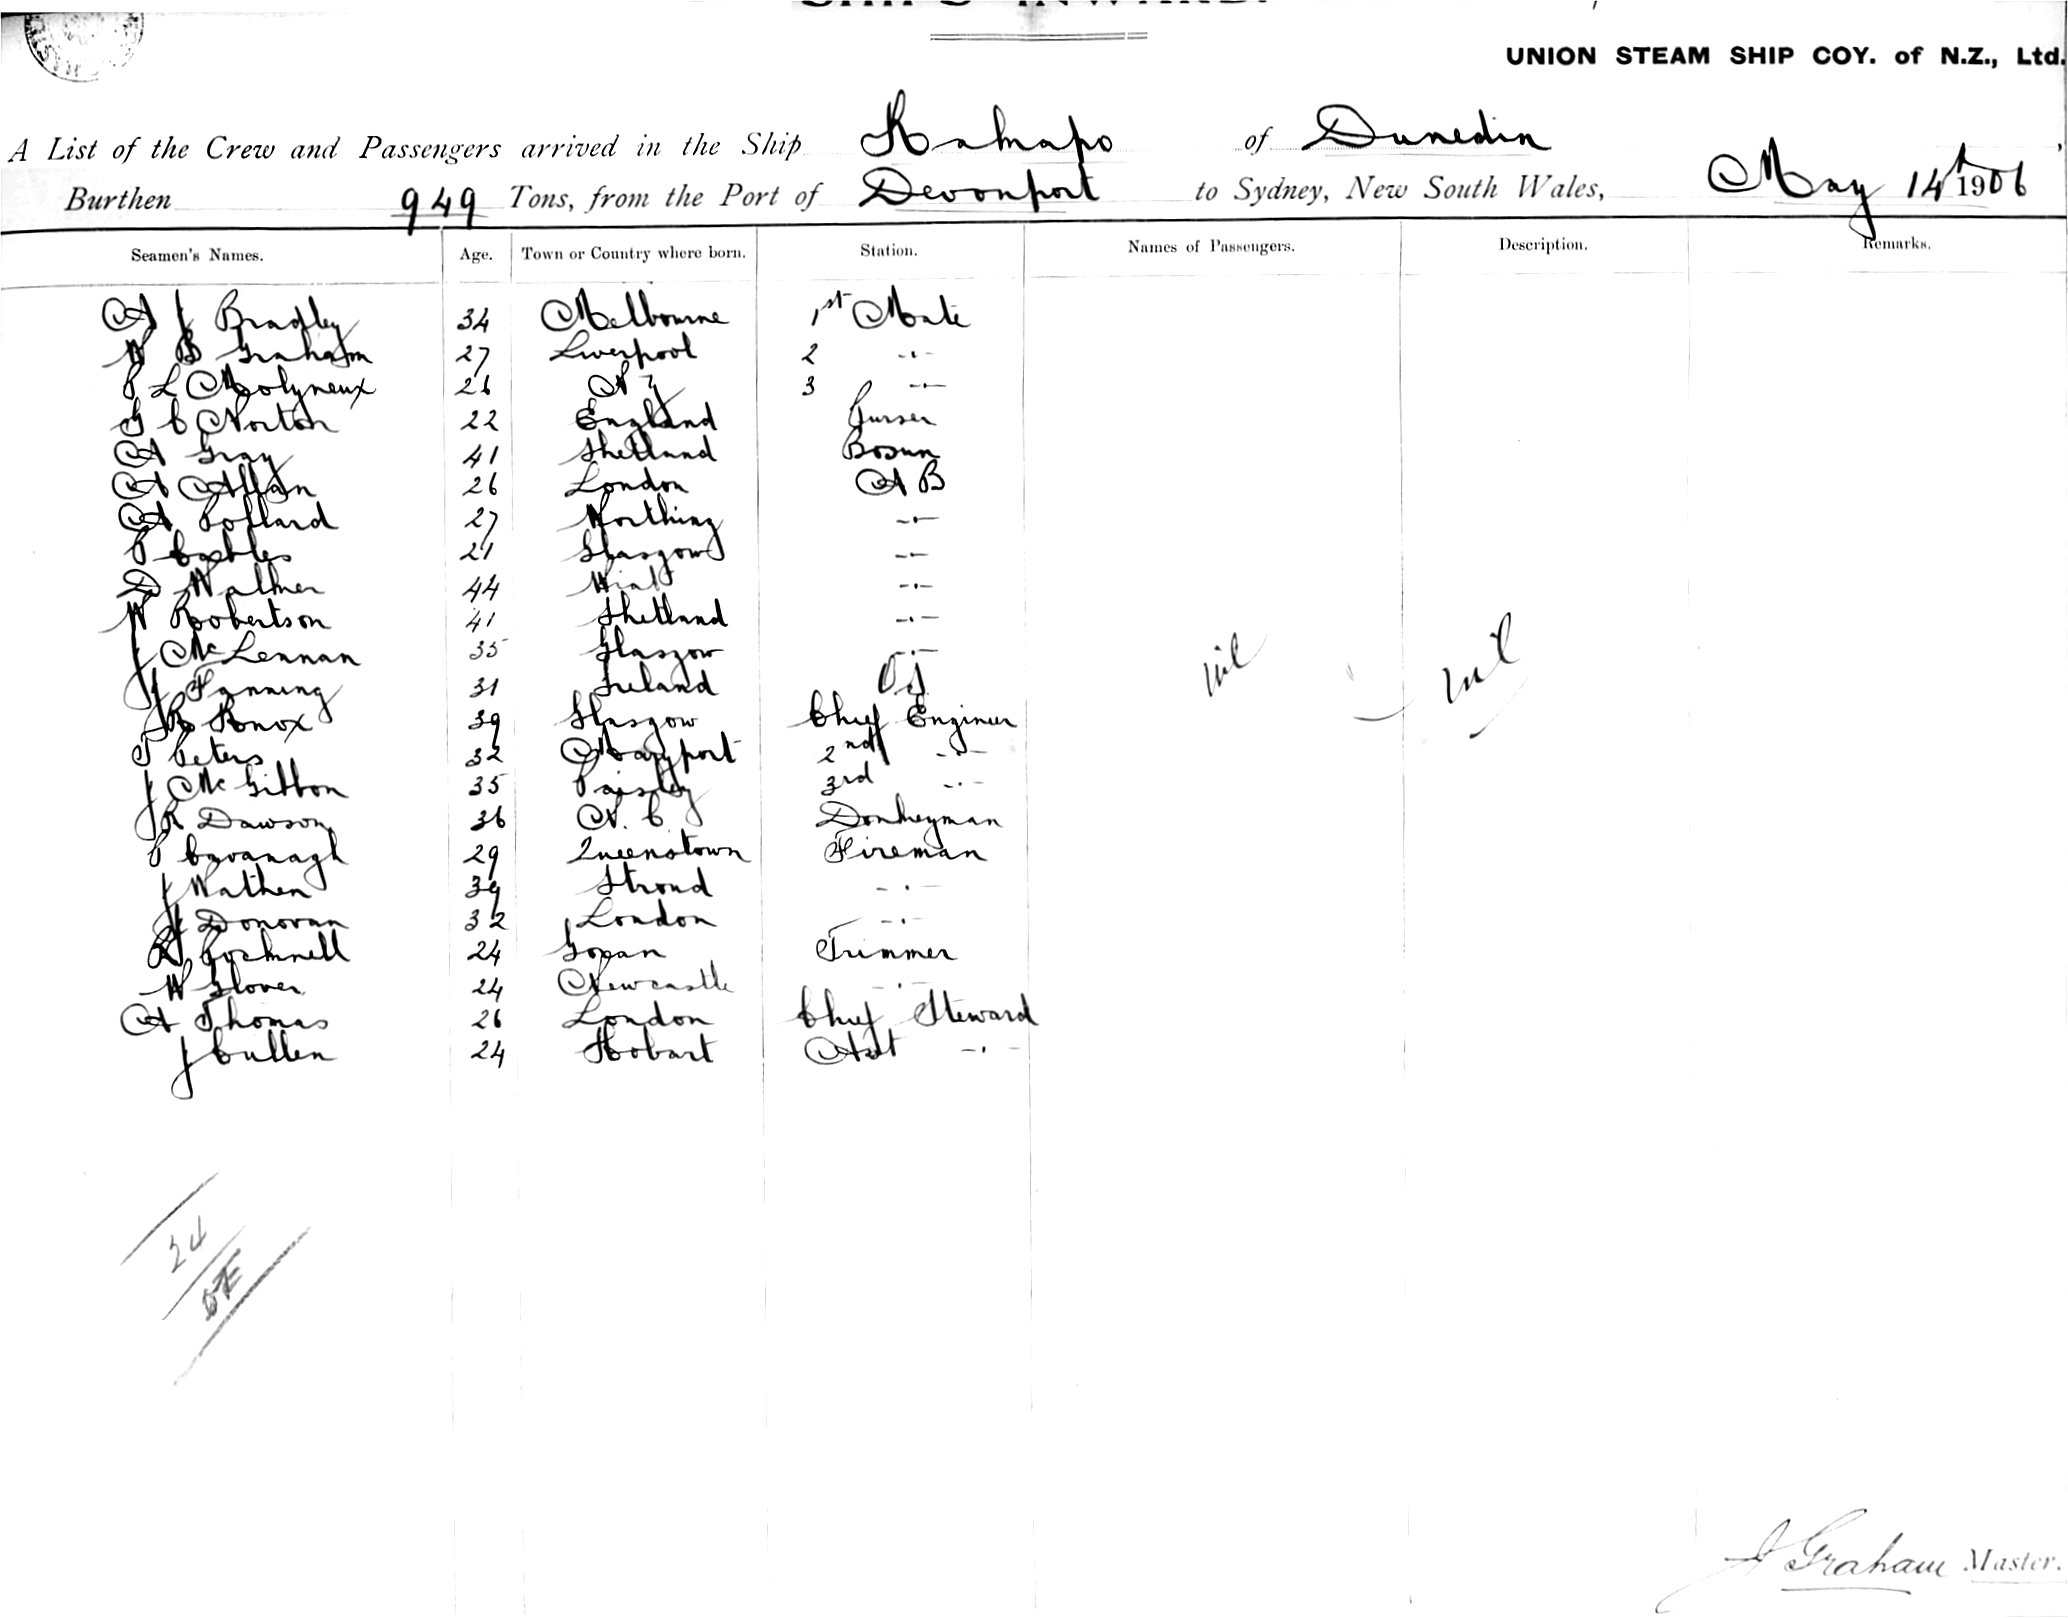 UNION STEAM SHIP COY. of N.Z., Ltd.
A List of the Crew and Passengers arrived in the Ship Kakapo of Dunedin,
Burthen 949 Tons, from the Port of Devonport to Sydney, New South Wales, May 14th 1906
Seamen's Names. Age. Town or Country where born. Station. Names of Passengers. Description. Remarks.
A J Bradley 34 Melbourne 1st Mate
W B Graham 27 Liverpool 2 -"-
P L Molyneux 26 N Z 3 -"-
G C Norton 22 England Purser
A Gray 41 Shetland Bosun
A Allan 26 London A B
A Pollard 27 Worthing -"-
P 21 Glasgow -"-
D 44 -"-
W Robertson 41 Shetland -"-
J McLennan 35 Glasgow -"-
J Fanning 31 Ireland O S
nil nil
R Knox 39 Glasgow Chief Engineer
T Peters 32 Maryport 2nd -"-
J McGibbon 35 Paisley 3rd -"-
R Dawson 36 N. C Donkeyman
P Cavanagh 29 Queenstown Fireman
J Wathen 39 Stroud -"-
J Donovan 32 London -"-
R 24 Trimmer
W Glover 24 Newcastle -"-
A Thomas 26 London Chief Steward
J Cullen 24 Hobart Asst -"-
24
J Graham Master.